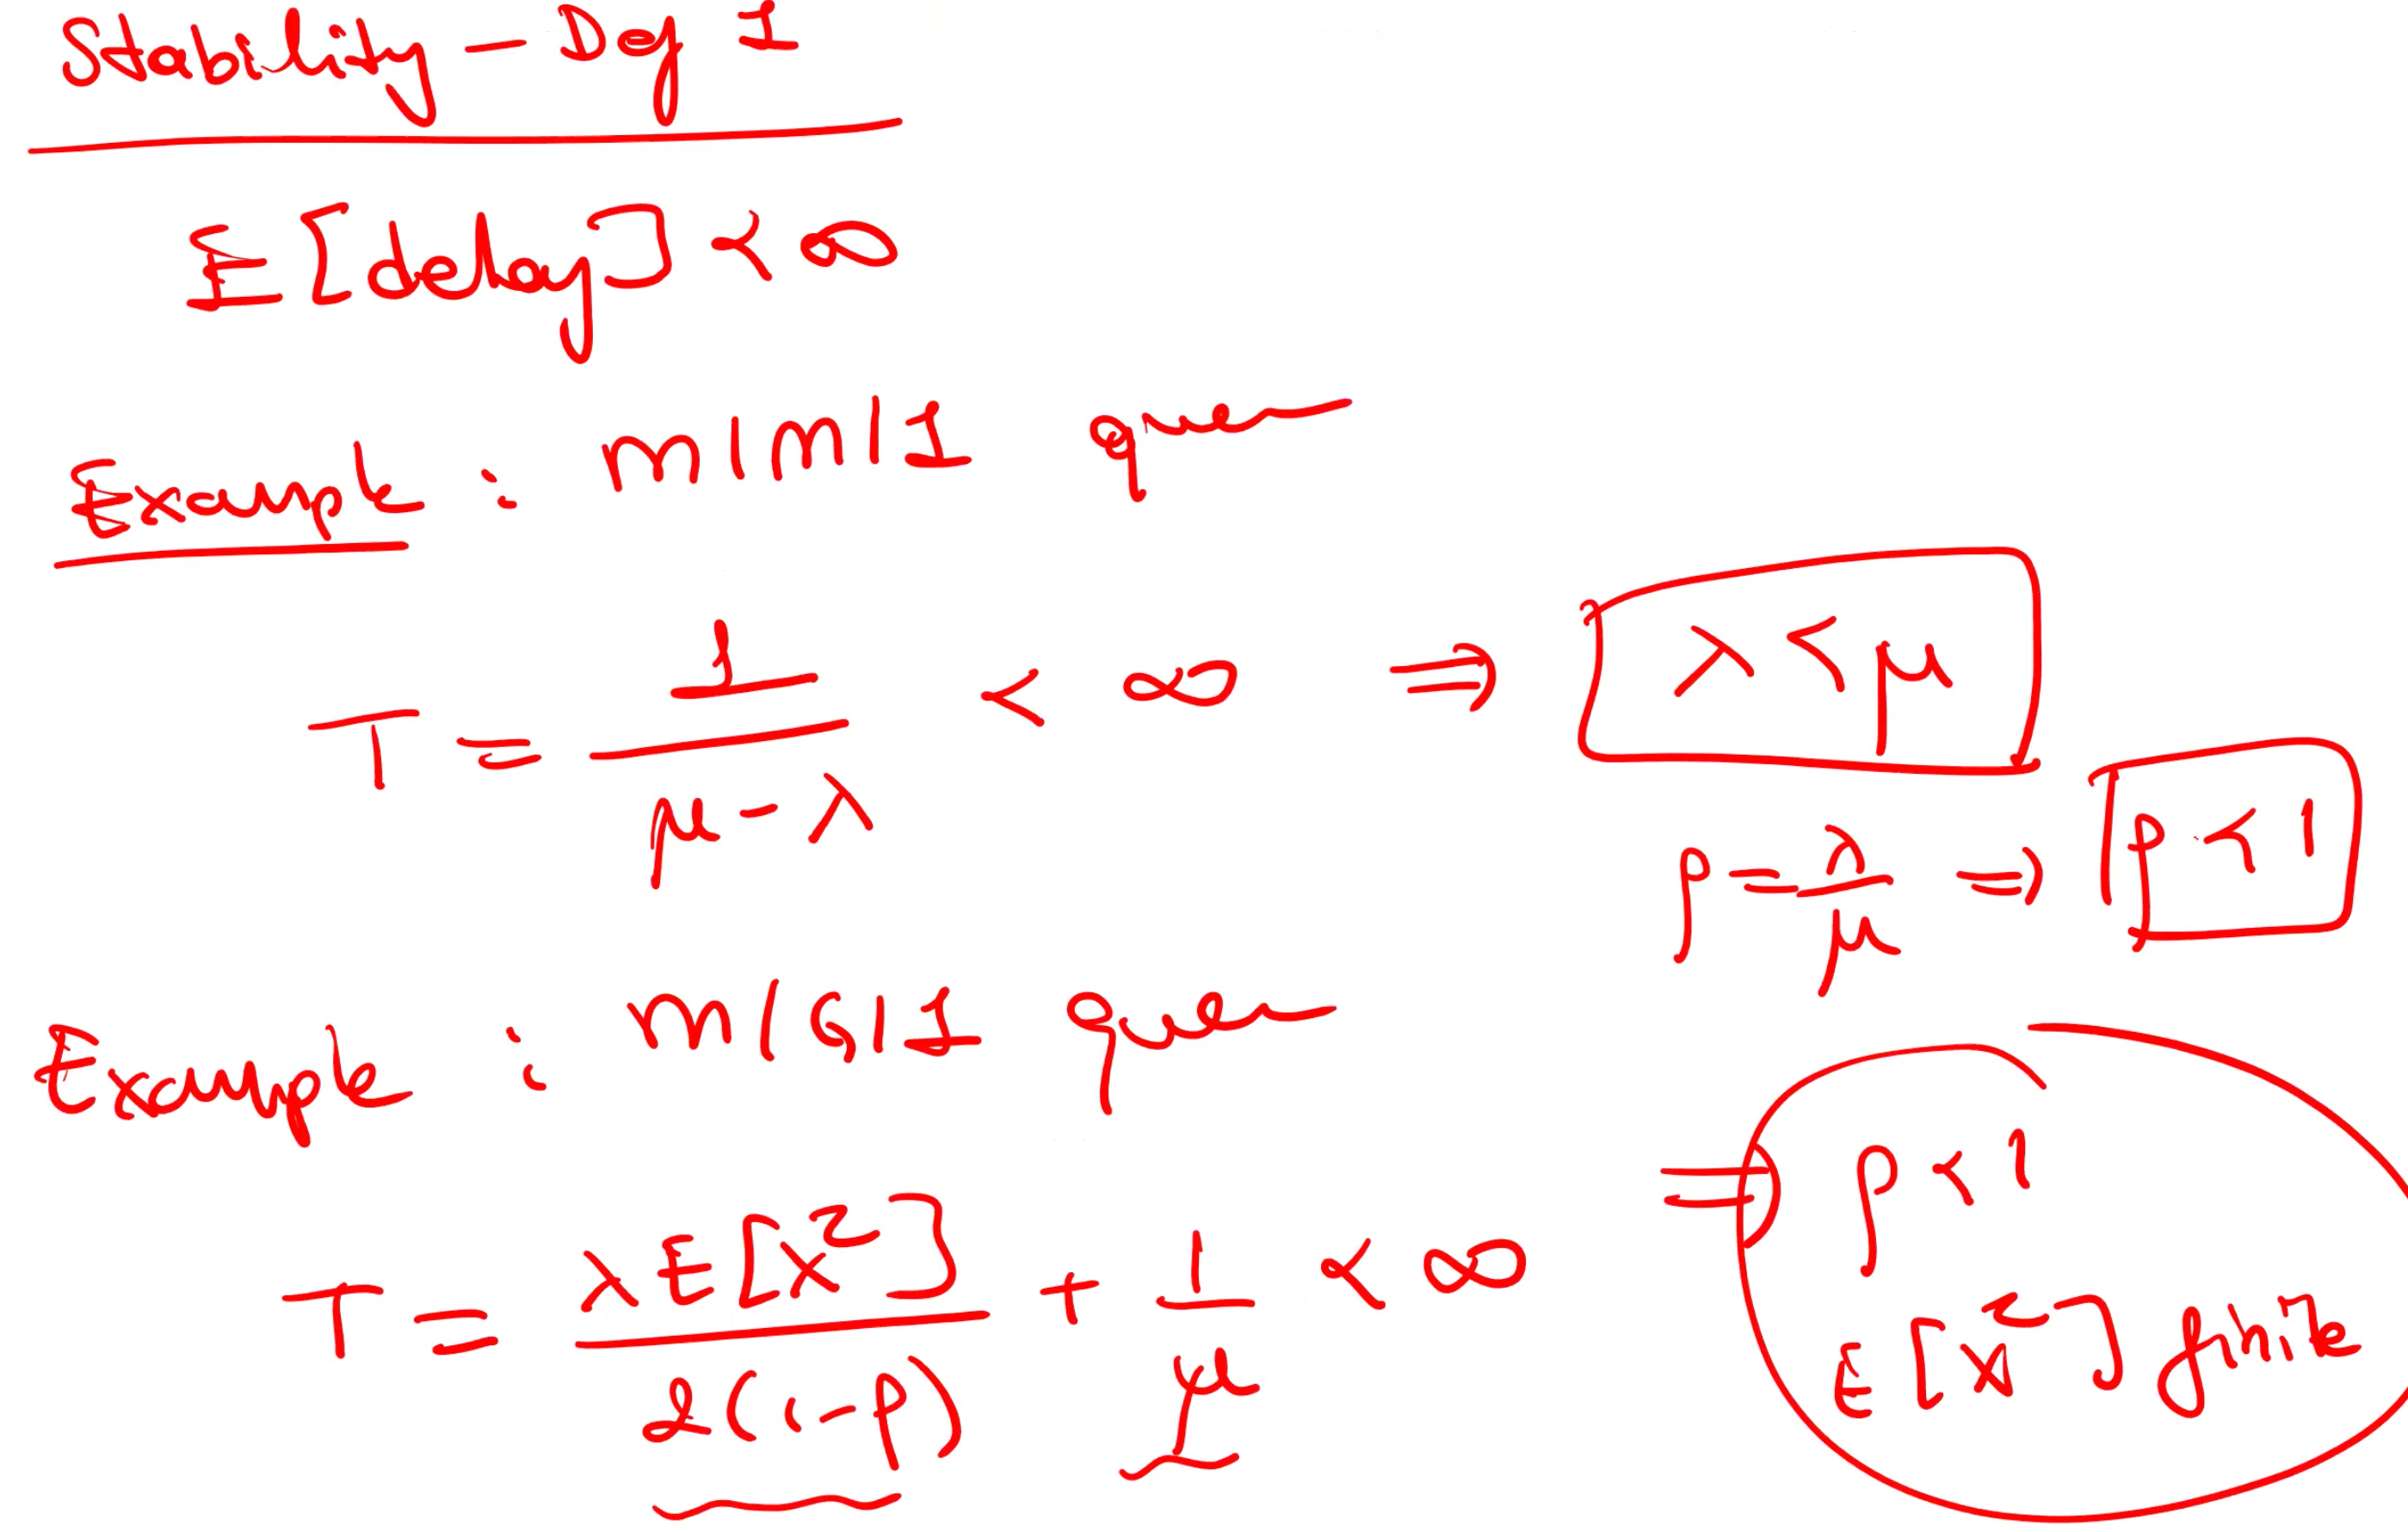 Stability - Def 1
E[delay] < ∞
Example : M|M|1 queue
T = 1 / (μ - λ) < ∞ ⇒ λ < μ
ρ = λ/μ ⇒ ρ < 1
Example : M|G|1 queue
T = λ E[X²] / 2(1-ρ) + 1/μ < ∞ ⇒ ρ < 1
E[X²] finite